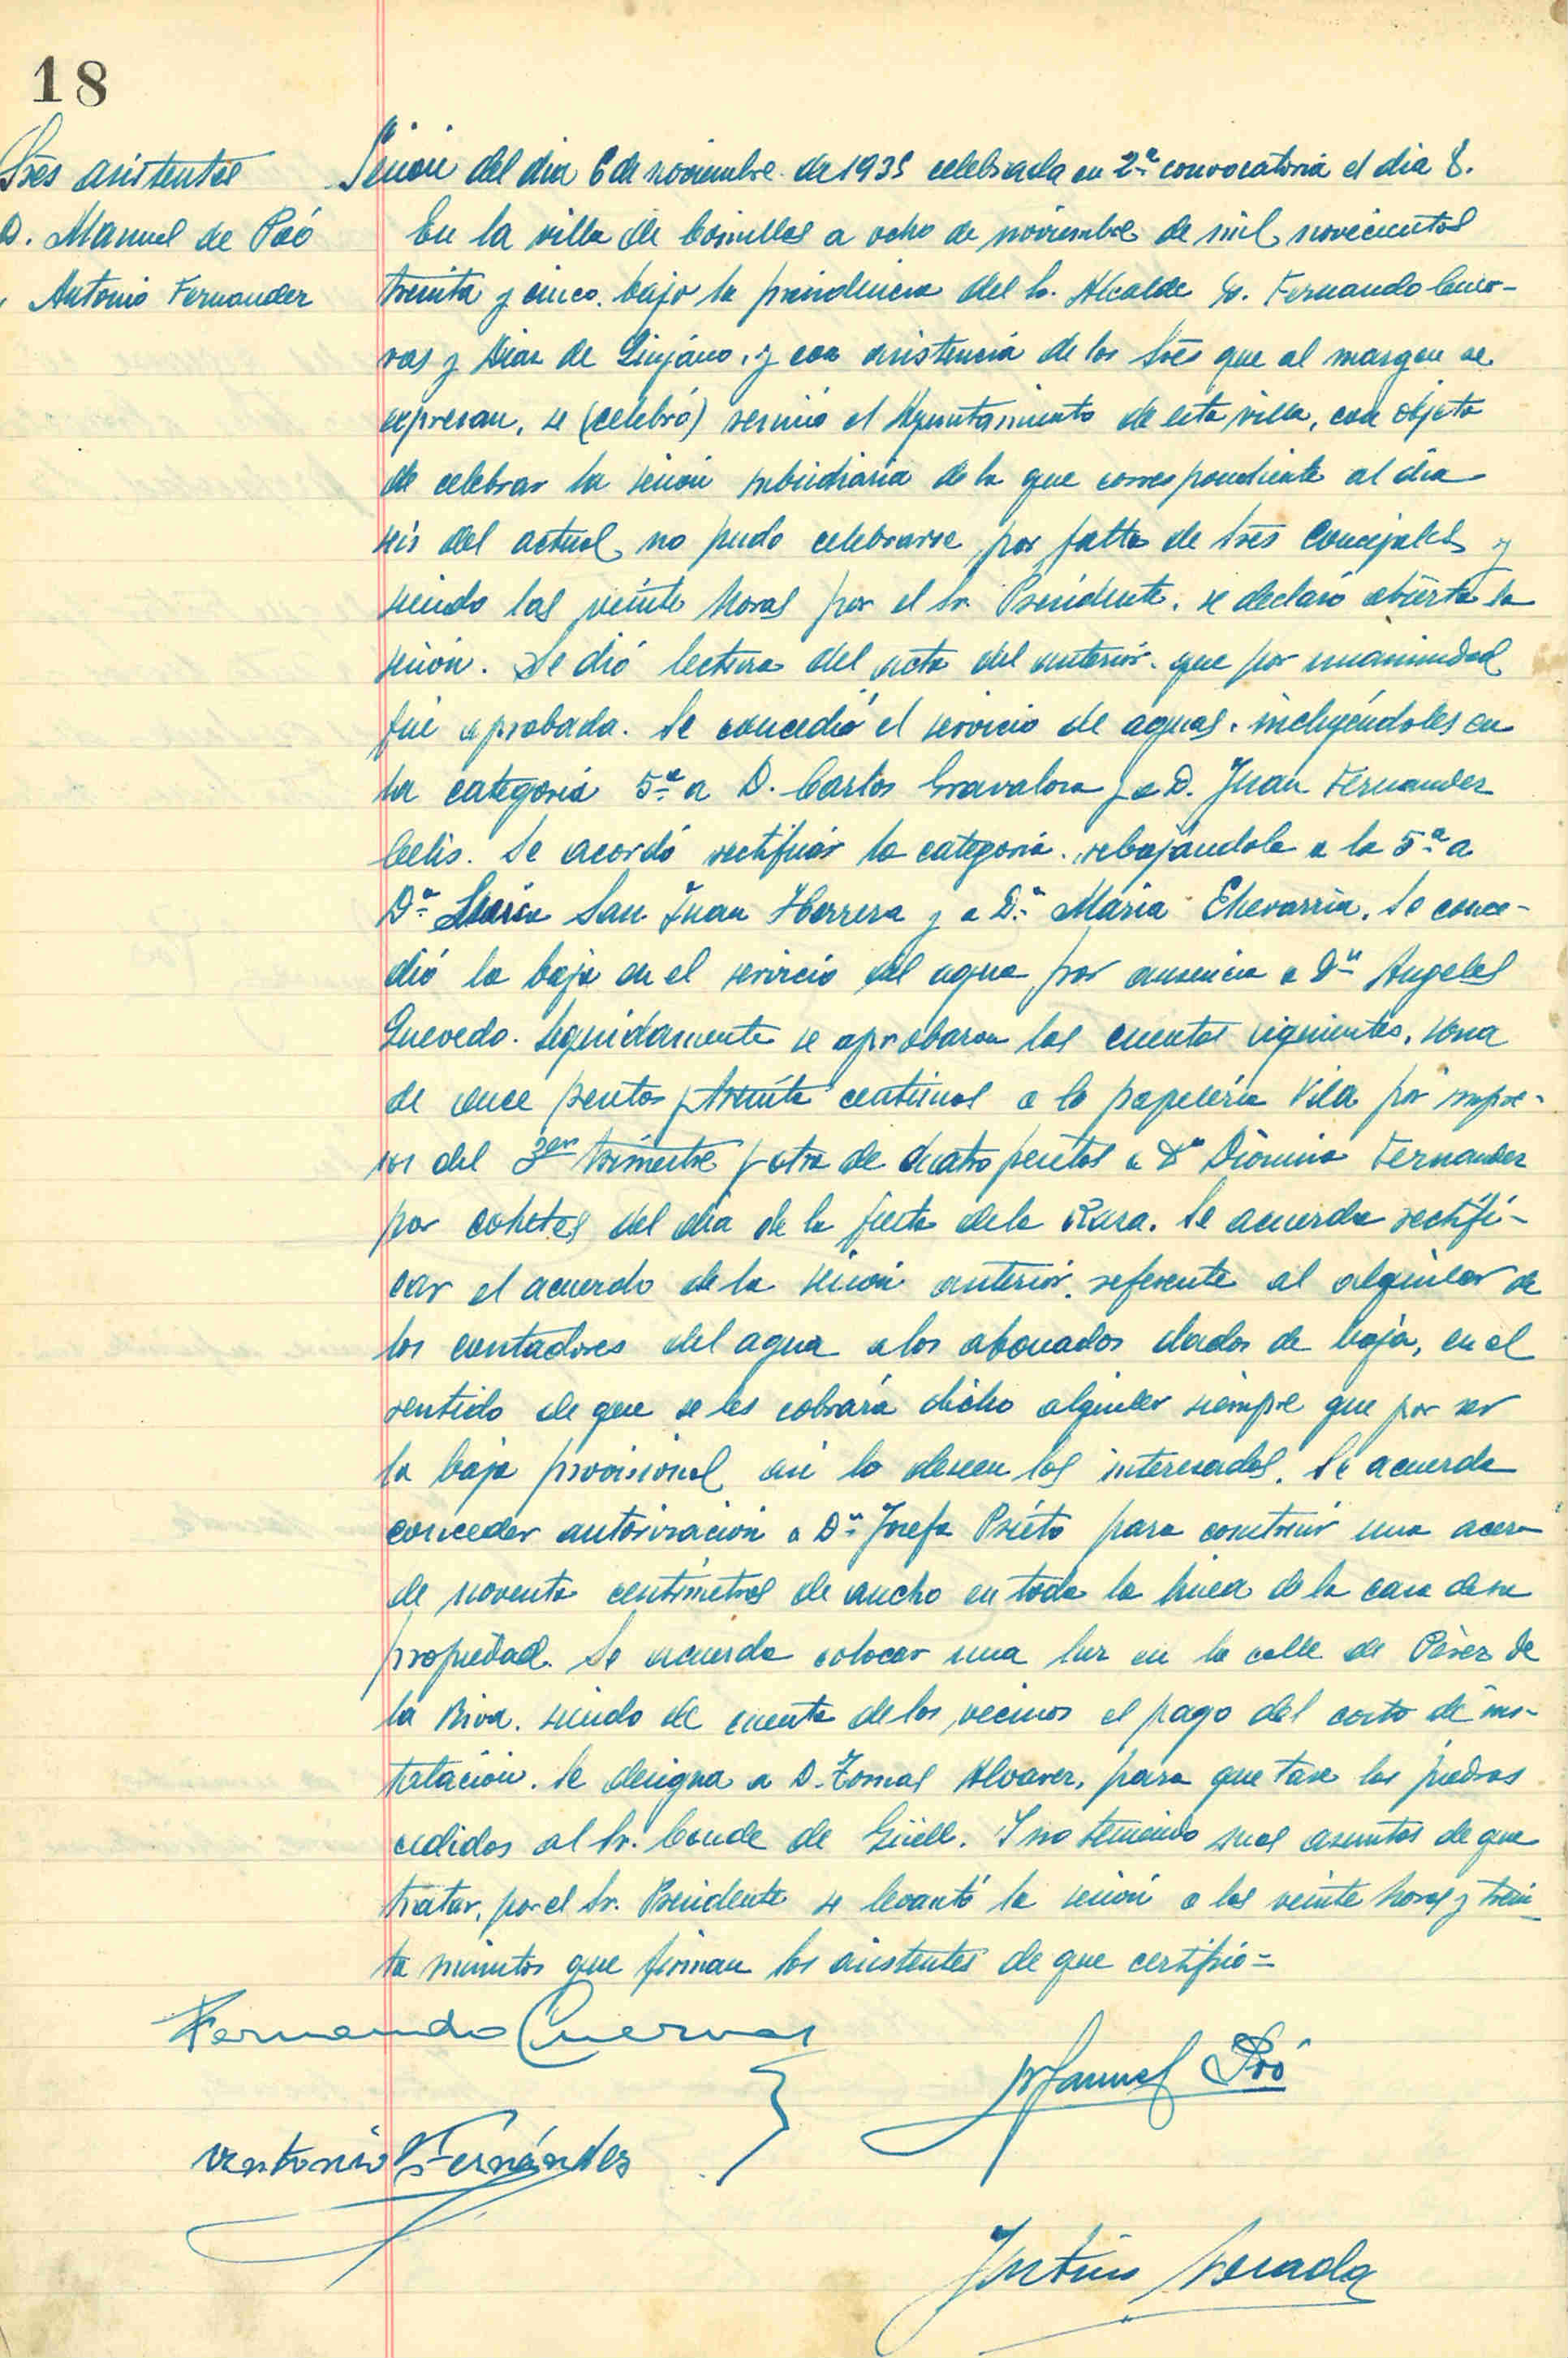 18
Sres asistentes
D. Manuel de Pró
" Antonio Fernandez
Sesión del dia 6 de noviembre de 1935 celebrada en 2ª convocatoria el dia 8.
En la villa de Comillas a ocho de noviembre de mil novecientos
treinta y cinco, bajo la presidencia del Sr. Alcalde D. Fernando Cuer-
vas y Diaz de Quijano, y con asistencia de los Sres que al margen se
expresan, se (celebró) reunió el Ayuntamiento de esta villa, con objeto
de celebrar la sesión subsidiaria de la que correspondiente al dia
seis del actual no pudo celebrarse por falta de Sres Concejales y
siendo las veinte horas por el Sr. Presidente, se declaró abierta la
sesión. Se dió lectura del acta del anterior, que por unanimidad
fué aprobada. Se concedió el servicio de aguas, incluyéndoles en
la categoria 5ª a D. Carlos Gravalosa y a D. Juan Fernandez
Celis. Se acordó rectificar la categoria, rebajándola a la 5ª a
Dª San Juan Herrera y a Dª María Echevarria. Se conce-
dió la baja en el servicio del agua por ausencia a Dª Angeles
Quevedo. Seguidamente se aprobaron las cuentas siguientes, una
de once pesetas y treinta centimos a la papeleria Vila por impre-
sos del 3er trimestre y otra de cuatro pesetas a Dª Dionisia Fernandez
por cohetes del dia de la fiesta de la Raza. Se acuerda rectifi-
car el acuerdo de la sesión anterior, referente al alquiler de
los contadores del agua a los abonados dados de baja, en el
sentido de que se les cobrará dicho alquiler siempre que por ser
la baja provisional asi lo deseen los interesados. Se acuerda
conceder autorización a Dª Josefa Prieto para construir una acera
de noventa centimetros de ancho en toda la linea de la casa de su
propiedad. Se acuerda colocar una luz en la calle de Pérez de
la Riva, siendo de cuenta de los vecinos el pago del costo de ins-
talación. Se designa a D. Tomas Alvarez, para que tase las piedras
cedidas al Sr. Conde de Güell. Y no teniendo mas asuntos de que
tratar, por el Sr. Presidente se levantó la sesión a las veinte horas y trein-
ta minutos que firman los asistentes de que certifico=
Fernando Cuervas
Manuel Pró
Antonio Fernández